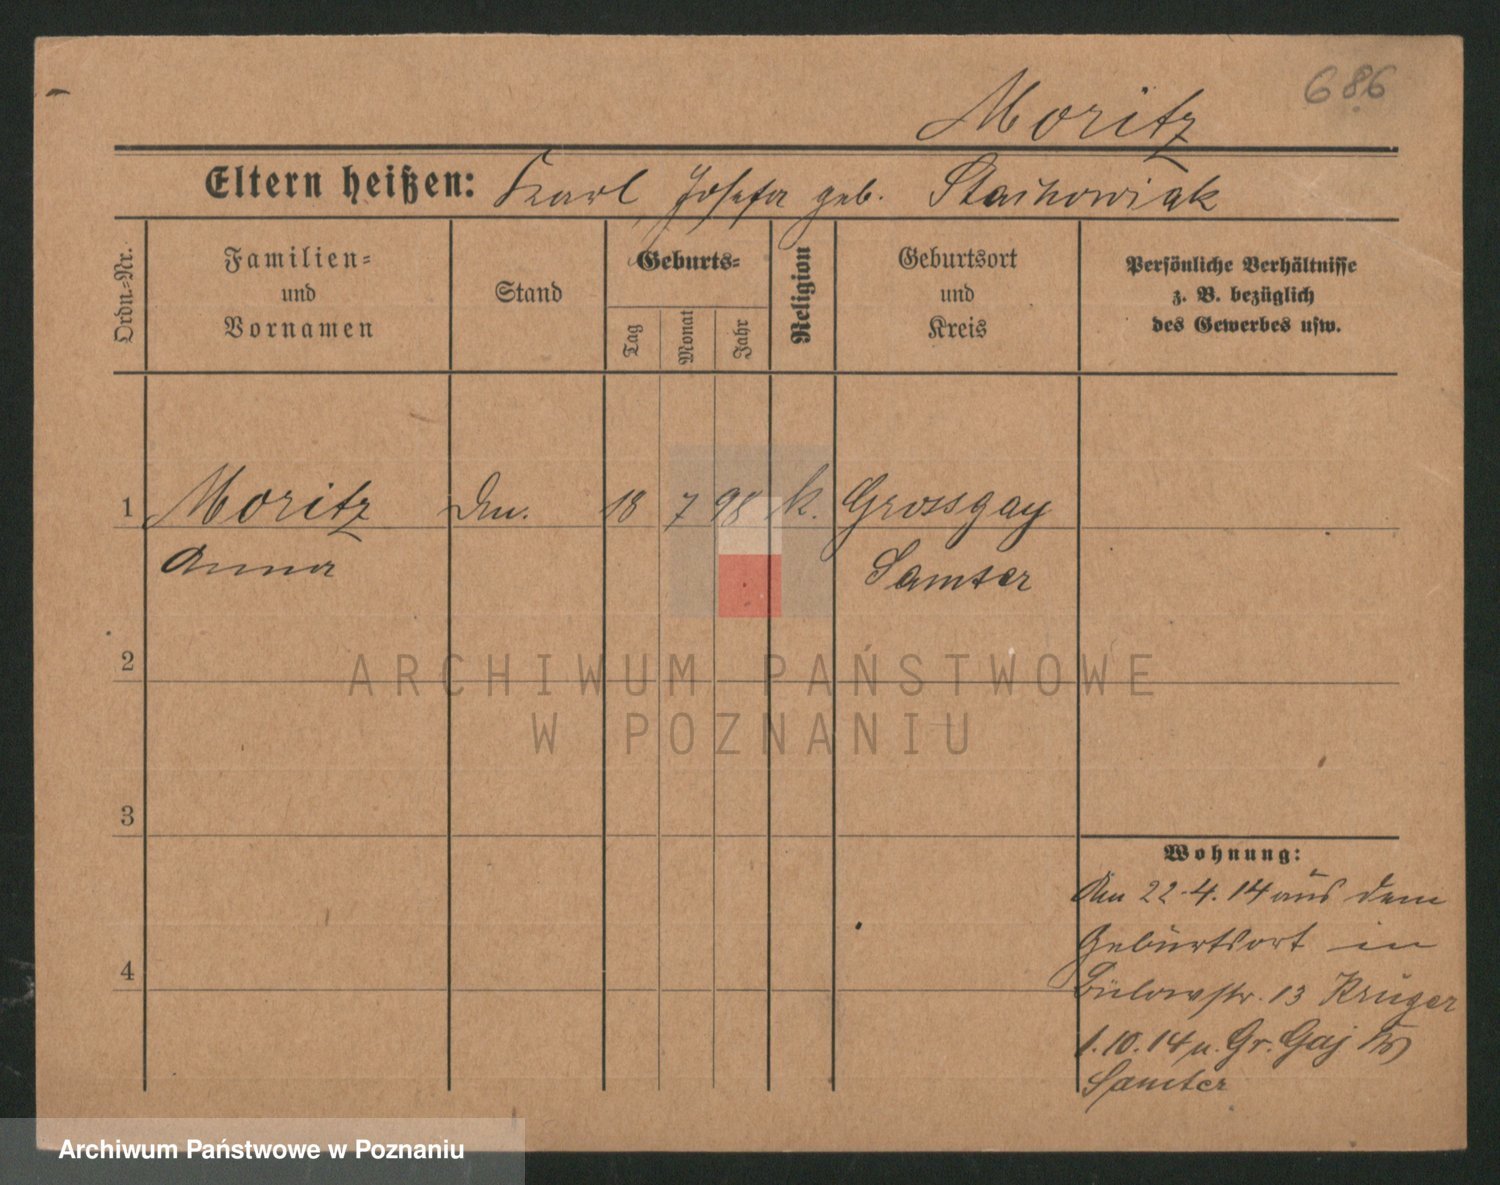 686
Moritz
Eltern heißen: Karl Josefa geb. Stachowiak
Ordn.-Nr.
Familien-
und
Vornamen
Stand
Geburts-
Tag
Monat
Jahr
Religion
Geburtsort
und
Kreis
Persönliche Verhältnisse
z. B. bezüglich
des Gewerbes usw.
1 Moritz 18 7 98 k. Grossgay
Anna Samter
2
ARCHIWUM PAŃSTWOWE
W POZNANIU
3
Wohnung:
22.4.14 aus dem
Geburtsort in
4
Bülowstr. 13 Krüger
1.10.14 n. Gr. Gaj Kr
Samter
Archiwum Państwowe w Poznaniu